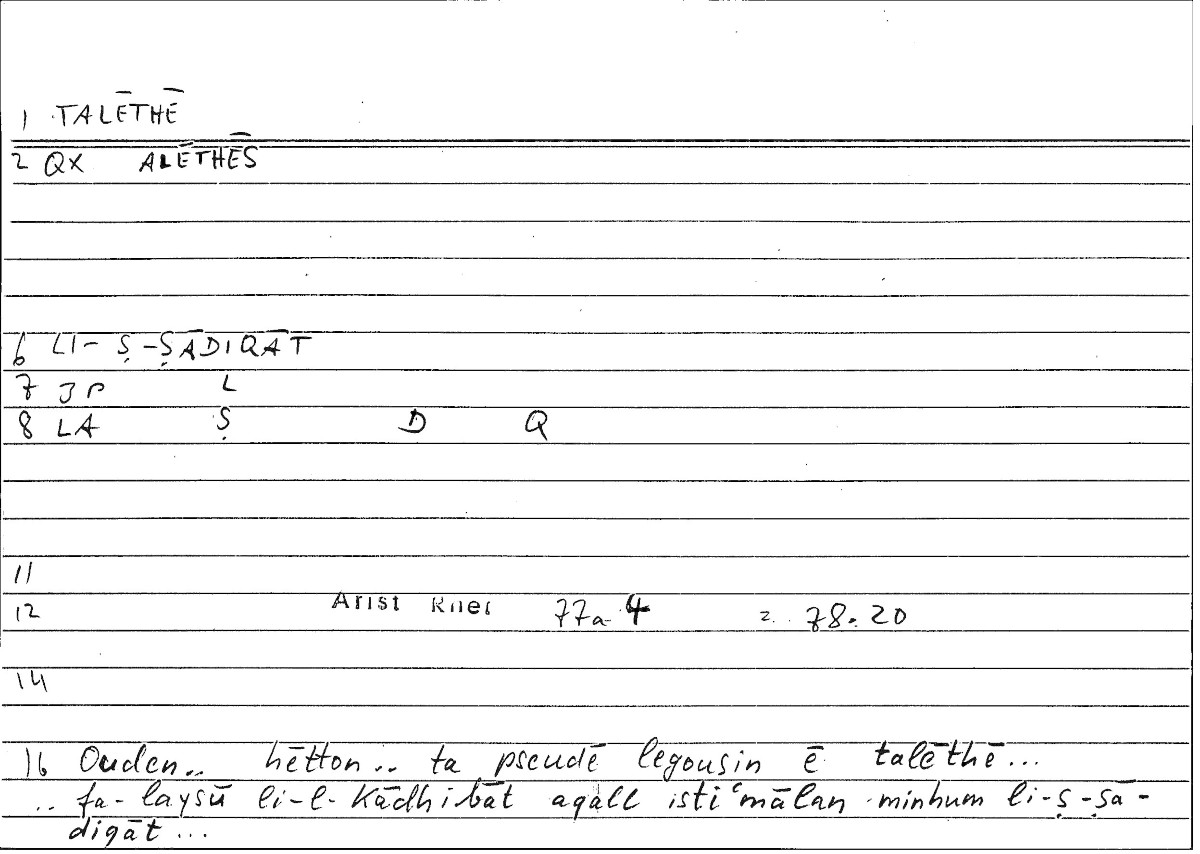 1 TALĒTHĒ
2 QX ALĒTHĒS
6 LI-Ṣ-ṢĀDIQĀT
7 JP L
8 LA Ṣ D Q
11
12 Arist Rhet 77a 4 = 78.20
14
16 Ouden.. hētton.. ta pseudē legousin ē talēthē...
.. fa-laysū li-l-Kādhibāt aqall istiʿmālan minhum li-ṣ-ṣā-
diqāt...